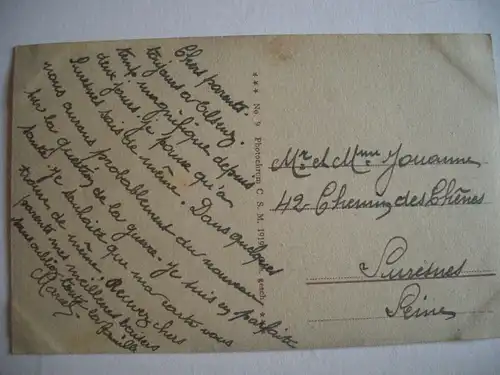 Chers parents.
toujours à
temps magnifique depuis
deux jours. Je pense qu'à
Suresnes cela sera de même. Dans quelques
nous aurons probablement du nouveau
sur la question de la guerre. Je suis en parfaite
santé. Je souhaite que ma carte vous
trouve de même. Recevez chers
parents mes meilleurs baisers
sans oublier toute la famille
Marcel
*** No. 9 Photochrom C. S. M. 1919
Mr. et Mme Jouanne
42 Chemin des Chênes
Suresnes
Seine